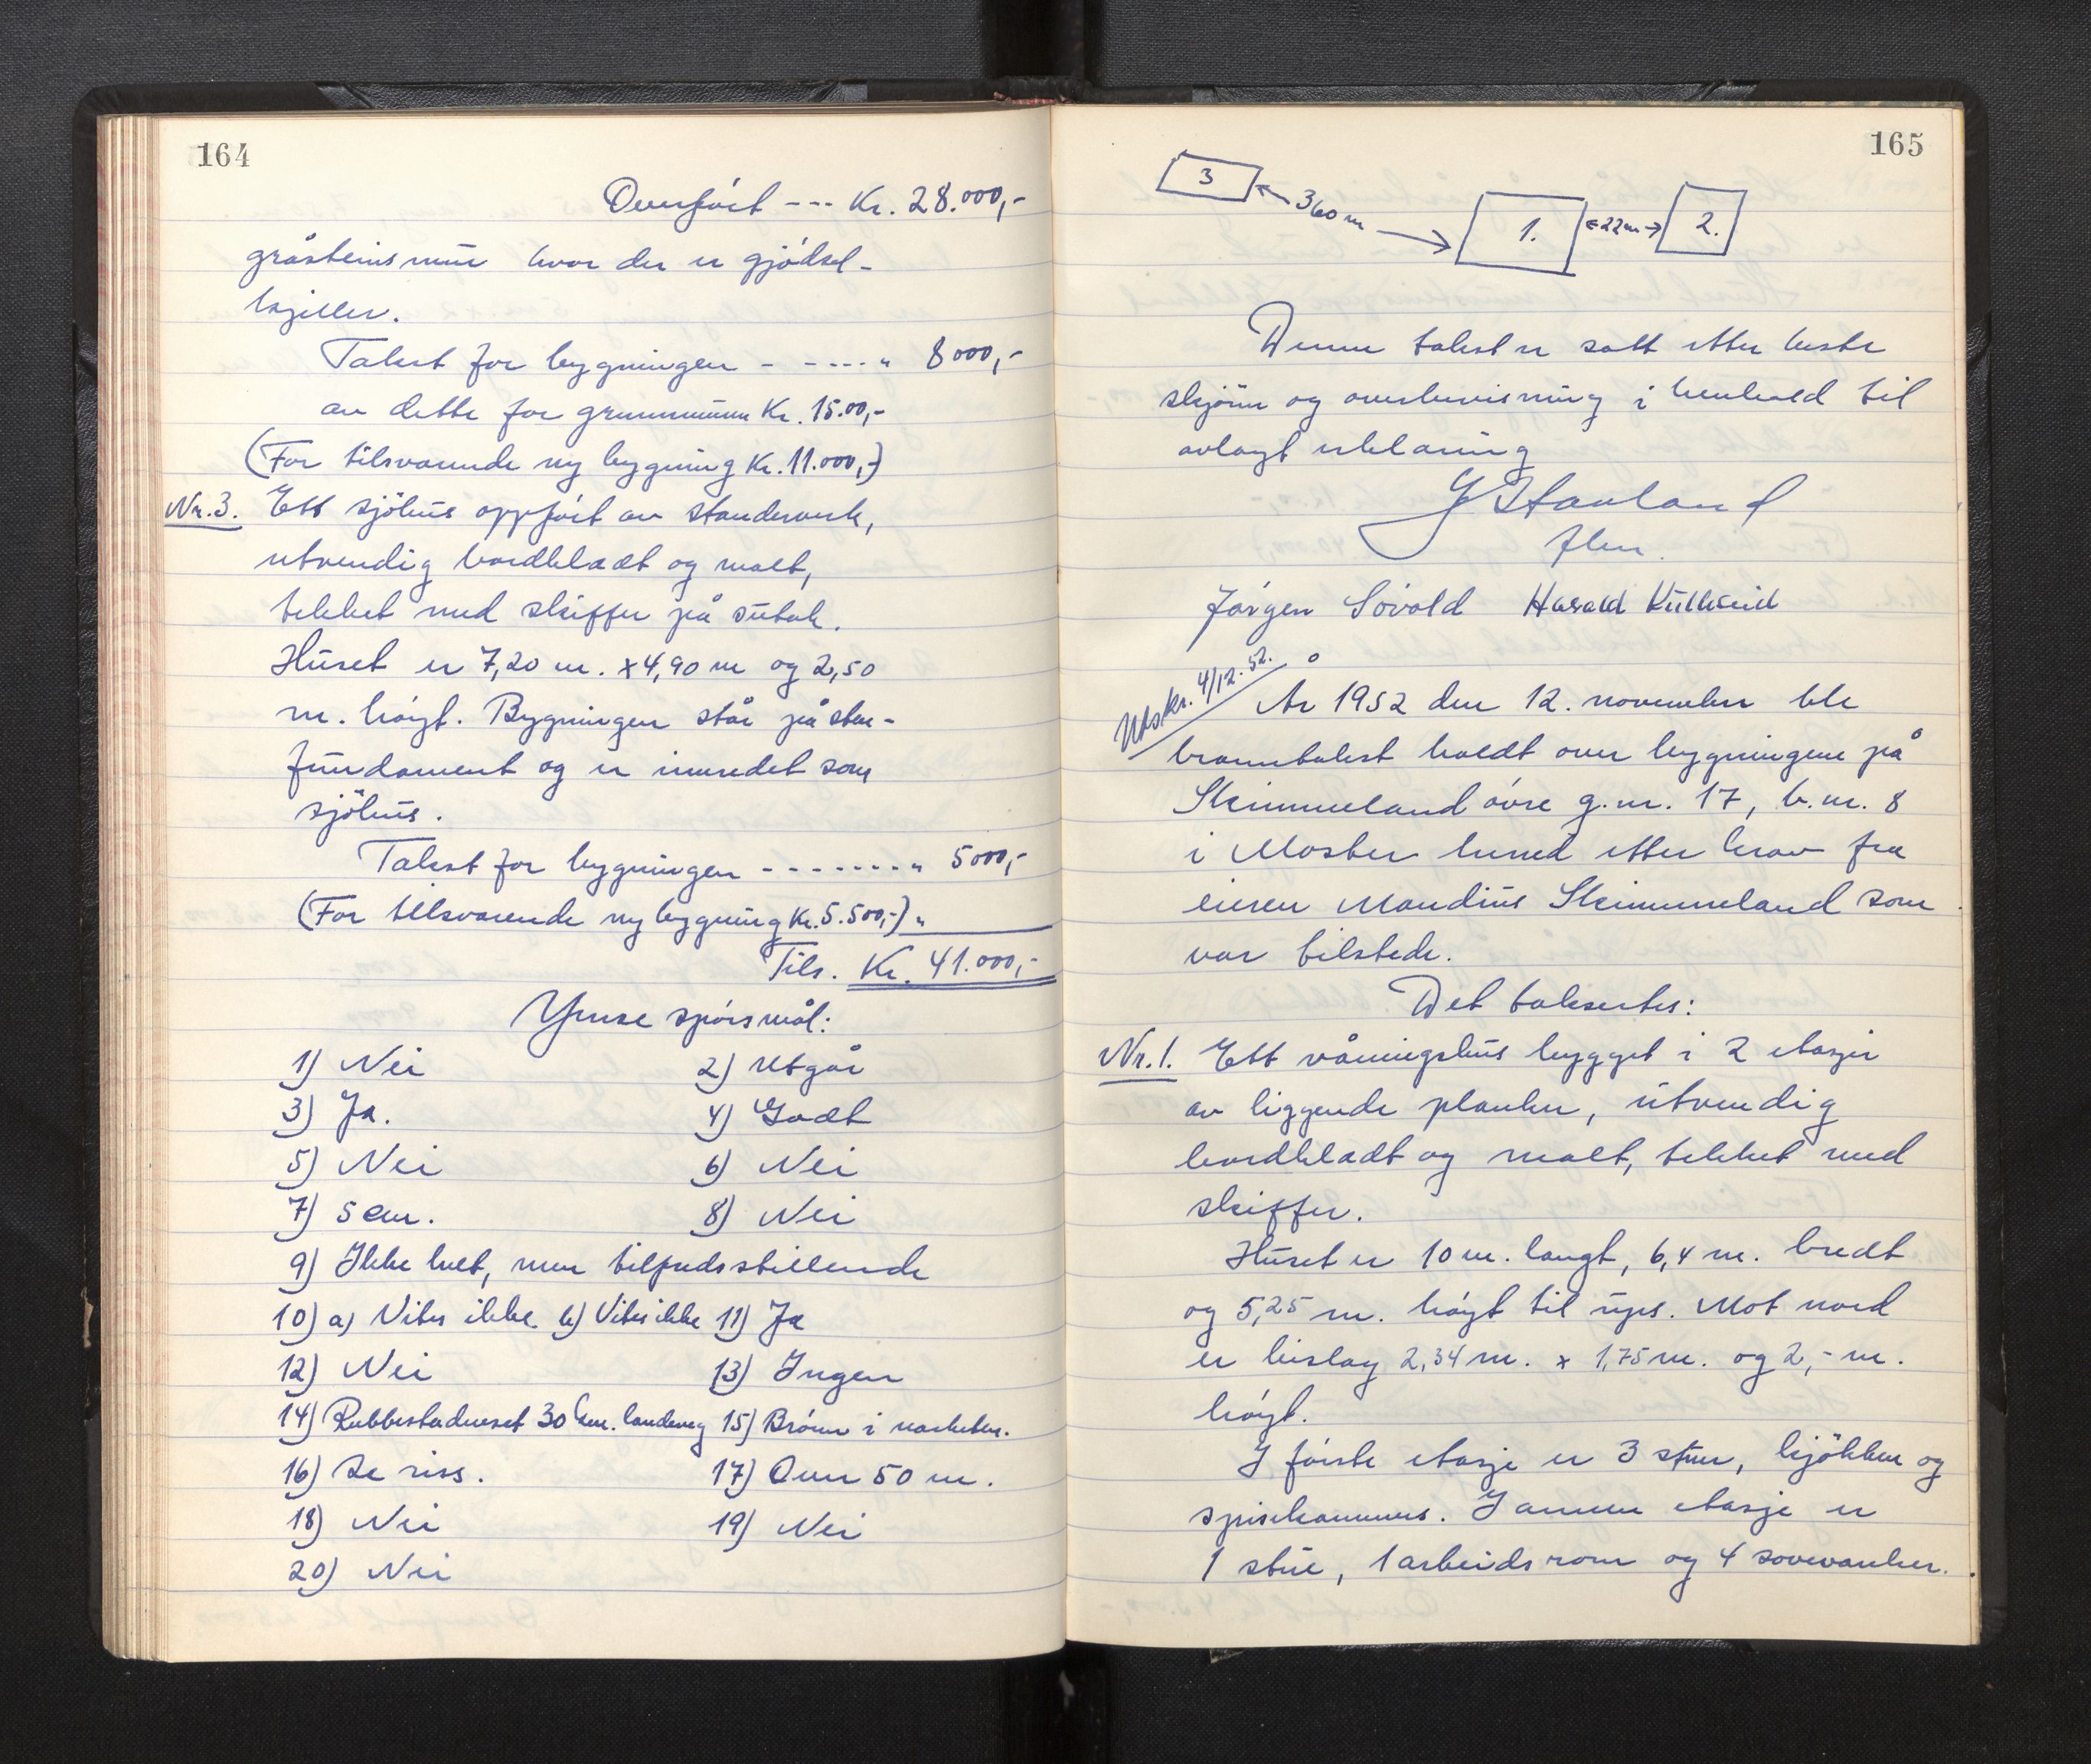 164
Overført --- Kr. 28.000,-
gråsteinsmur hvor der er gjødsel-
kjeller.
Takst for bygningen - - ---- " 8000,-
av dette for grunnmuren Kr. 1500,-
(For tilsvarende ny bygning Kr. 11.000,-)
Nr. 3. Ett sjøhus oppført av standerverk,
utvendig bordkledt og malt,
tekket med skiffer på sutak.
Huset er 7,20 m. x 4,90 m og 2,50
m. høyt. Bygningen står på sten-
fundament og er innredet som
sjøhus.
Takst for bygningen - - - - - - - " 5000,-
(For tilsvarende ny bygning Kr. 5.500,-) "
Tils. Kr. 41.000,-
Ymse spørsmål:
1) Nei 2) Utgår
3) Ja. 4) Godt
5) Nei 6) Nei
7) 5 cm. 8) Nei
9) Ikke helt, men tilfredsstillende
10) a) Vites ikke b) Vites ikke 11) Ja
12) Nei 13) Ingen
14) Rubbestadneset 30 km. landeveg 15) Brønn i nærheten.
16) Se riss. 17) Over 50 m.
18) Nei 19) Nei
20) Nei
165
3 360 m 1. 22m 2.
Denne takst er satt etter beste
skjønn og overbevisning i henhold til
avlagt erklæring
J Stavland
flm.
Jørgen Søvold Harald Kulleseid
Utskr. 4/12. 52.
År 1952 den 12. november ble
branntakst holdt over bygningene på
Skimmeland øvre g.nr. 17, b.nr. 8
i Moster herred etter krav fra
eieren Mandius Skimmeland som
var tilstede.
Det taksertes:
Nr. 1. Ett våningshus bygget i 2 etasjer
av liggende planker, utvendig
bordkledt og malt, tekket med
skiffer.
Huset er 10 m. langt, 6,4 m. bredt
og 5,25 m. høyt til ups. Mot nord
er bislag 2,34 m. x 1,75 m. og 2,- m.
høyt.
I første etasje er 3 stuer, kjøkken og
spisekammers. I annen etasje er
1 stue, 1 arbeidsrom og 4 soveværelser.